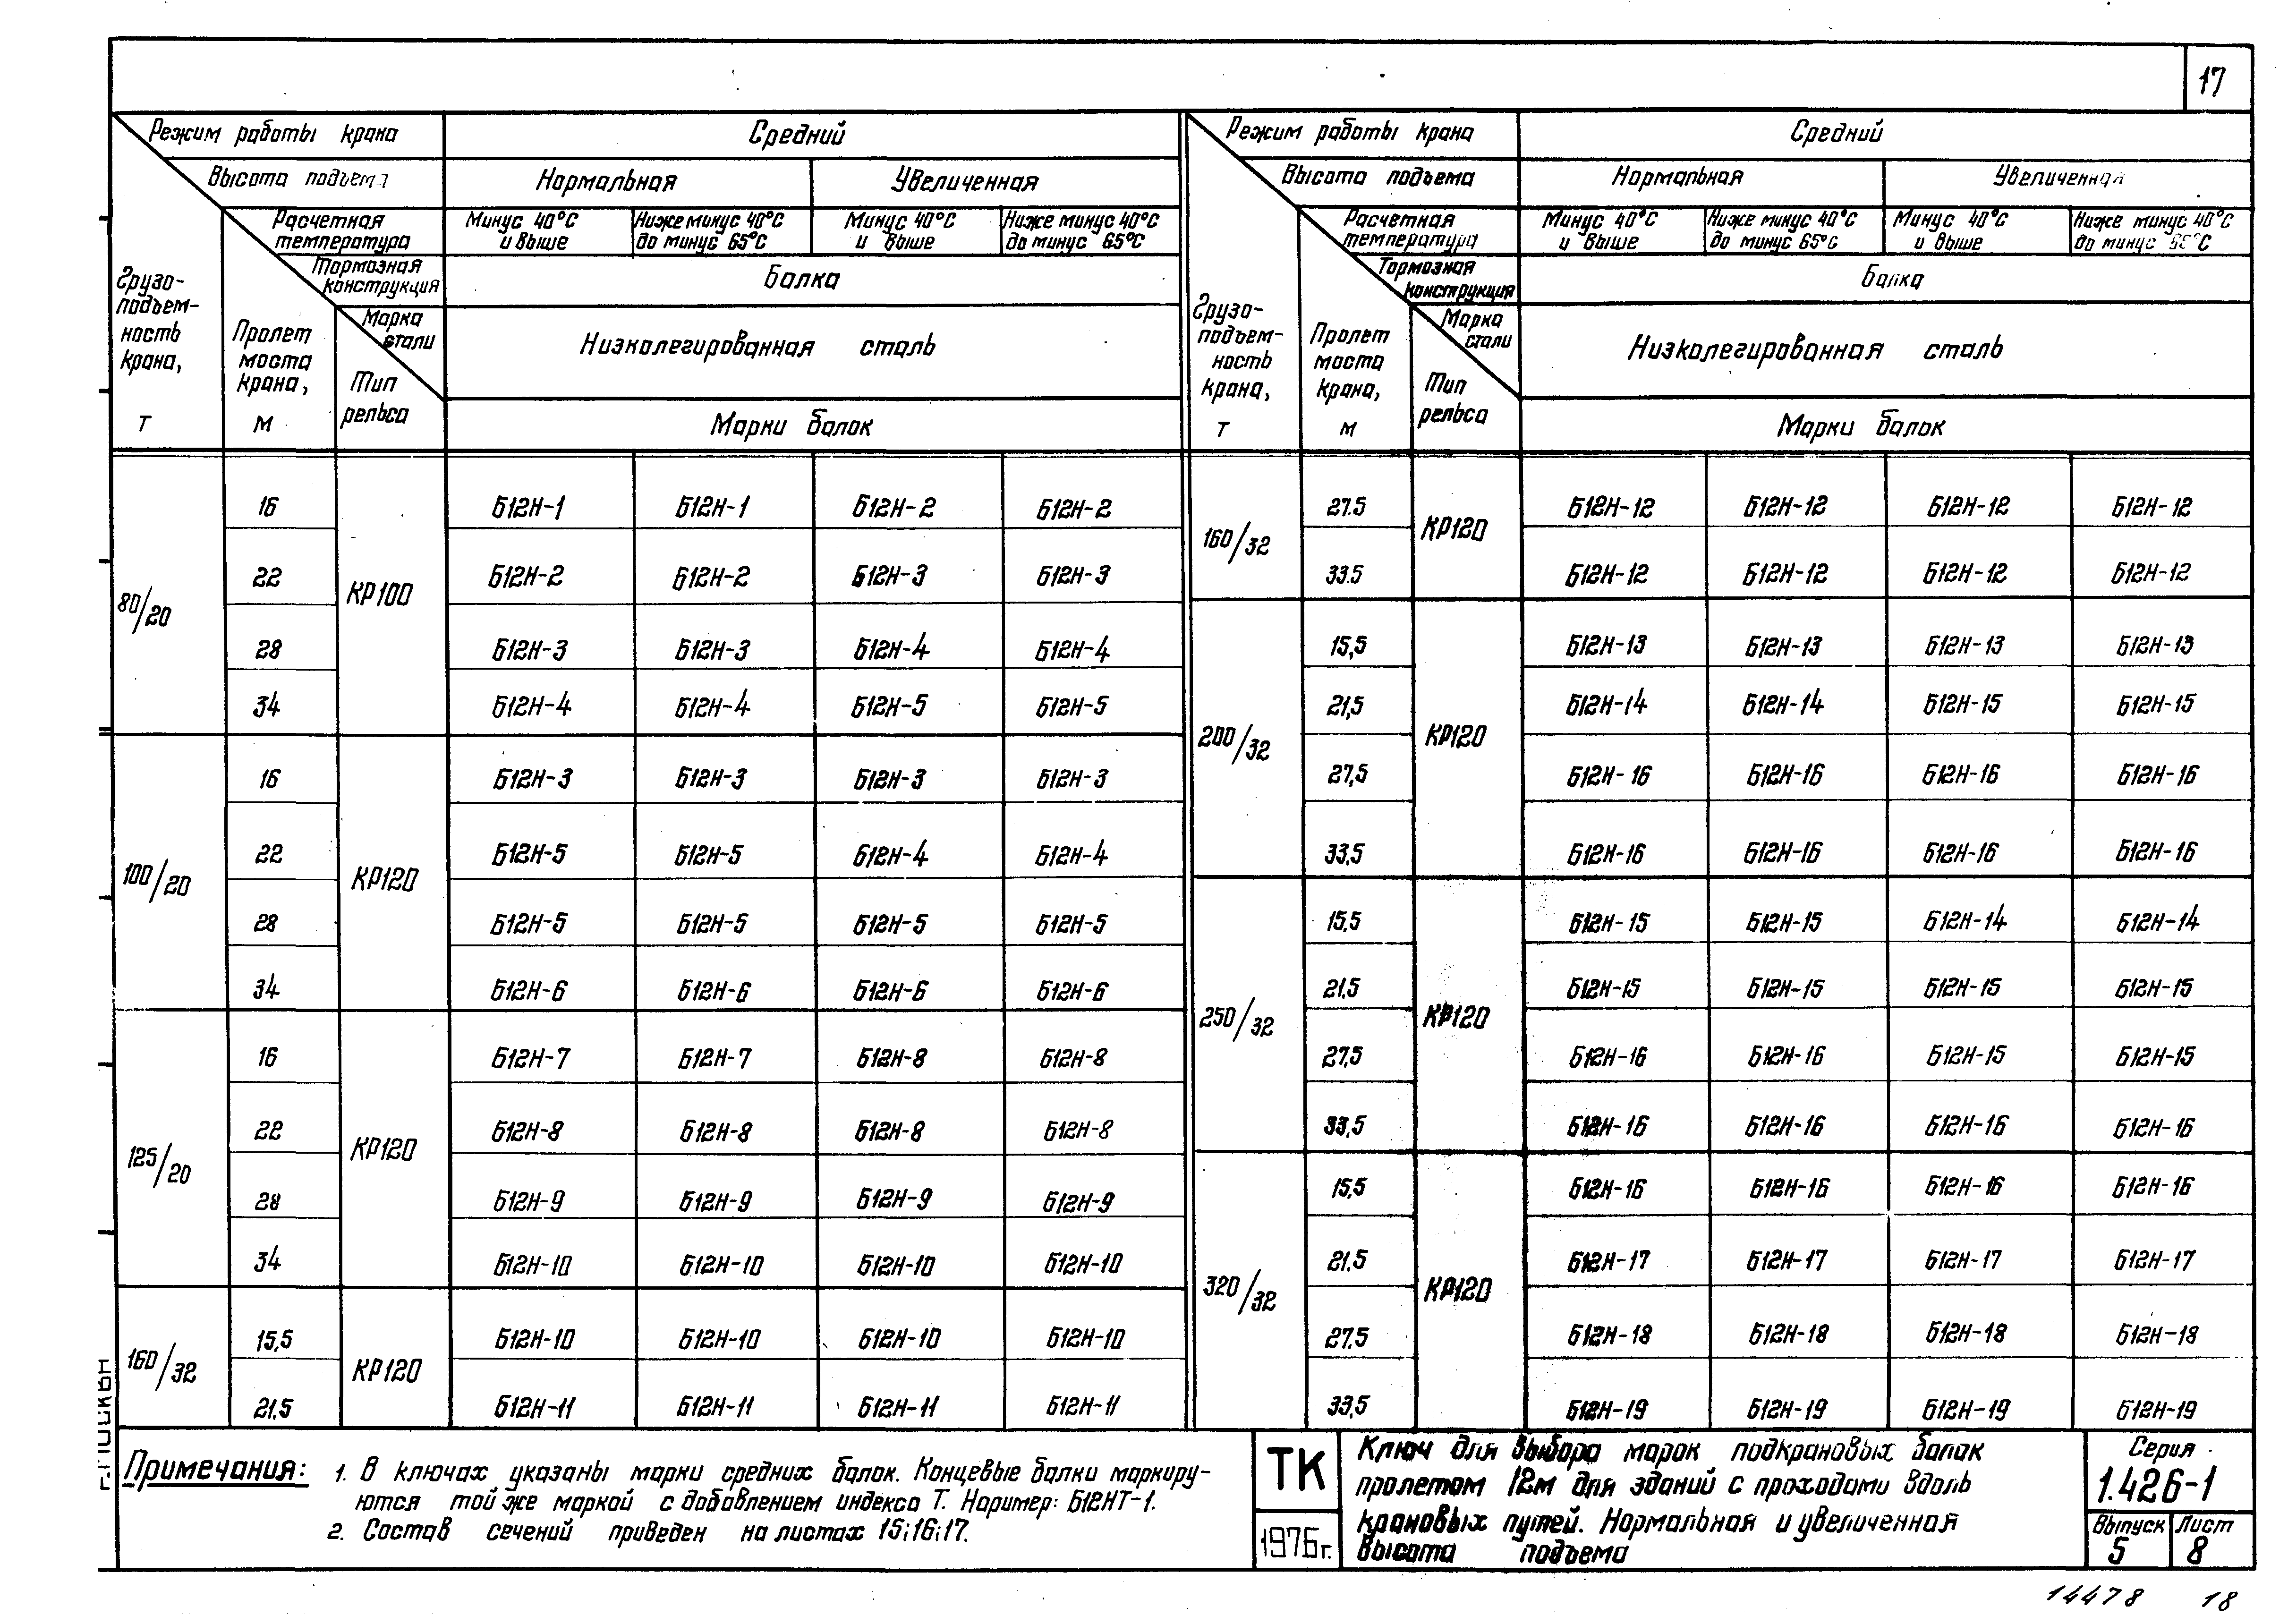 17
Режим работы крана
Средний
Высота подъема
Нормальная
Увеличенная
Расчетная температура
Минус 40°С и выше
Ниже минус 40°С до минус 65°С
Минус 40°С и выше
Ниже минус 40°С до минус 65°С
Тормозная конструкция
Балка
Грузо-подъем-ность крана, т
Пролет моста крана, м
Марка стали
Тип рельса
Низколегированная сталь
Марки балок
80/20
КР100
16 Б12Н-1 Б12Н-1 Б12Н-2 Б12Н-2
22 Б12Н-2 Б12Н-2 Б12Н-3 Б12Н-3
28 Б12Н-3 Б12Н-3 Б12Н-4 Б12Н-4
34 Б12Н-4 Б12Н-4 Б12Н-5 Б12Н-5
100/20
КР120
16 Б12Н-3 Б12Н-3 Б12Н-3 Б12Н-3
22 Б12Н-5 Б12Н-5 Б12Н-4 Б12Н-4
28 Б12Н-5 Б12Н-5 Б12Н-5 Б12Н-5
34 Б12Н-6 Б12Н-6 Б12Н-6 Б12Н-6
125/20
КР120
16 Б12Н-7 Б12Н-7 Б12Н-8 Б12Н-8
22 Б12Н-8 Б12Н-8 Б12Н-8 Б12Н-8
28 Б12Н-9 Б12Н-9 Б12Н-9 Б12Н-9
34 Б12Н-10 Б12Н-10 Б12Н-10 Б12Н-10
160/32
КР120
15,5 Б12Н-10 Б12Н-10 Б12Н-10 Б12Н-10
21,5 Б12Н-11 Б12Н-11 Б12Н-11 Б12Н-11
Режим работы крана
Средний
Высота подъема
Нормальная
Увеличенная
Расчетная температура
Минус 40°С и выше
Ниже минус 40°С до минус 65°С
Минус 40°С и выше
Ниже минус 40°С до минус 65°С
Тормозная конструкция
Балка
Грузо-подъем-ность крана, т
Пролет моста крана, м
Марка стали
Тип рельса
Низколегированная сталь
Марки балок
160/32
КР120
27.5 Б12Н-12 Б12Н-12 Б12Н-12 Б12Н-12
33.5 Б12Н-12 Б12Н-12 Б12Н-12 Б12Н-12
200/32
КР120
15,5 Б12Н-13 Б12Н-13 Б12Н-13 Б12Н-13
21,5 Б12Н-14 Б12Н-14 Б12Н-15 Б12Н-15
27,5 Б12Н-16 Б12Н-16 Б12Н-16 Б12Н-16
33,5 Б12Н-16 Б12Н-16 Б12Н-16 Б12Н-16
250/32
КР120
15,5 Б12Н-15 Б12Н-15 Б12Н-14 Б12Н-14
21,5 Б12Н-15 Б12Н-15 Б12Н-15 Б12Н-15
27,5 Б12Н-16 Б12Н-16 Б12Н-15 Б12Н-15
33,5 Б12Н-16 Б12Н-16 Б12Н-16 Б12Н-16
320/32
КР120
15,5 Б12Н-16 Б12Н-16 Б12Н-16 Б12Н-16
21,5 Б12Н-17 Б12Н-17 Б12Н-17 Б12Н-17
27,5 Б12Н-18 Б12Н-18 Б12Н-18 Б12Н-18
33,5 Б12Н-19 Б12Н-19 Б12Н-19 Б12Н-19
Примечания: 1. В ключах указаны марки средних балок. Концевые балки маркиру-
ются той же маркой с добавлением индекса Т. Наример: Б12НТ-1.
2. Состав сечений приведен на листах 15;16;17.
ТК
1976г.
Ключ для выбора марок подкрановых балок
пролетом 12м для зданий с проходами вдоль
крановых путей. Нормальная и увеличенная
высота подъема
Серия
1.426-1
Выпуск
5
Лист
8
14478 18